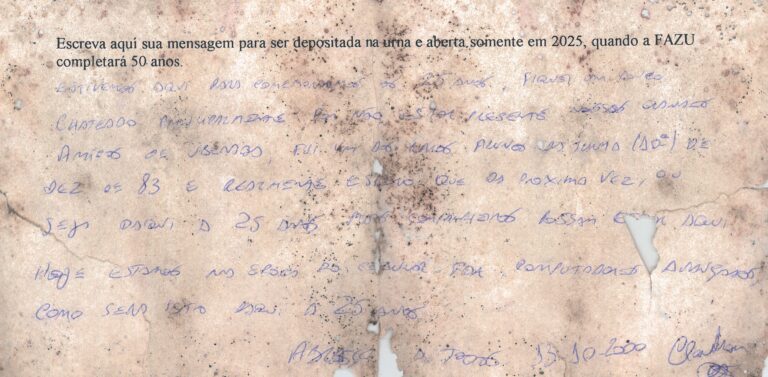 Escreva aqui sua mensagem para ser depositada na urna e aberta somente em 2025, quando a FAZU
completará 50 anos.
ESTIVEMOS AQUI PARA COMEMORARMOS OS 25 ANOS, FIQUEI UM POUCO
CHATEADO POR NÃO ESTAR PRESENTE NOSSOS GRANDES
AMIGOS DE FUI UM DOS ALUNOS DA TURMA DE
DEZ DE 83 E REALMENTE ESPERO QUE DA PROXIMA VEZ, OU
SEJA DAQUI A 25 ANOS POSSAM ESTAR AQUI
HOJE ESTAMOS NA EPOCA DO CELULAR - FAX, COMPUTADORES AVANÇADOS
COMO SERA ISTO DAQUI A 25 ANOS
ABRAÇOS A TODOS. 13-10-2000